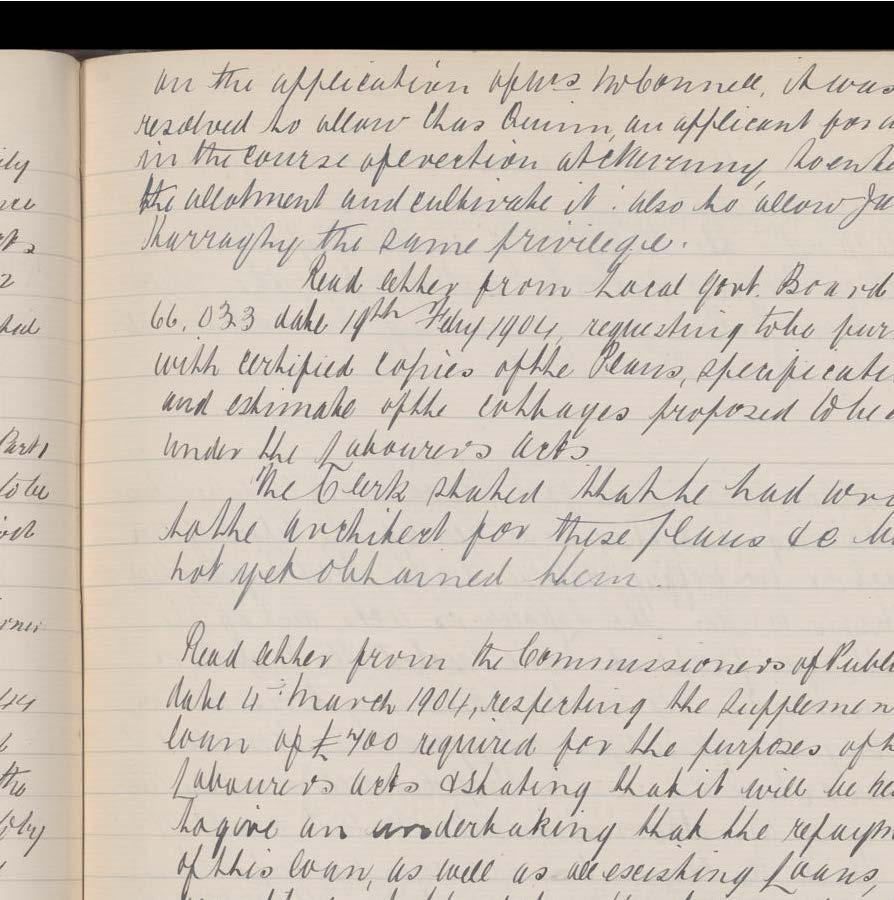 ily
On the application of Mrs McConnell, it was
resolved to allow Chas Quinn, an applicant for a
in the course of erection at
the allotment and cultivate it : also to allow Ja
the same privilege.
Read letter from Local Govt. Board
66,033 date 19th Feby 1904, requesting to be fur
with certified copies of the Plans, specificati
and estimate of the cottages proposed to be
under the Labourers Acts
The Clerk stated that he had wro
to the architect for these plans &c
not yet obtained them.
Read letter from the Commissioners of Publi
date 4th March 1904, respecting the Supplemen
loan of £700 required for the purposes of th
Labourers Acts & stating that it will be
to give an undertaking that the repaym
of this loan, as well as all existing Loans,
Parts
to be
44
the